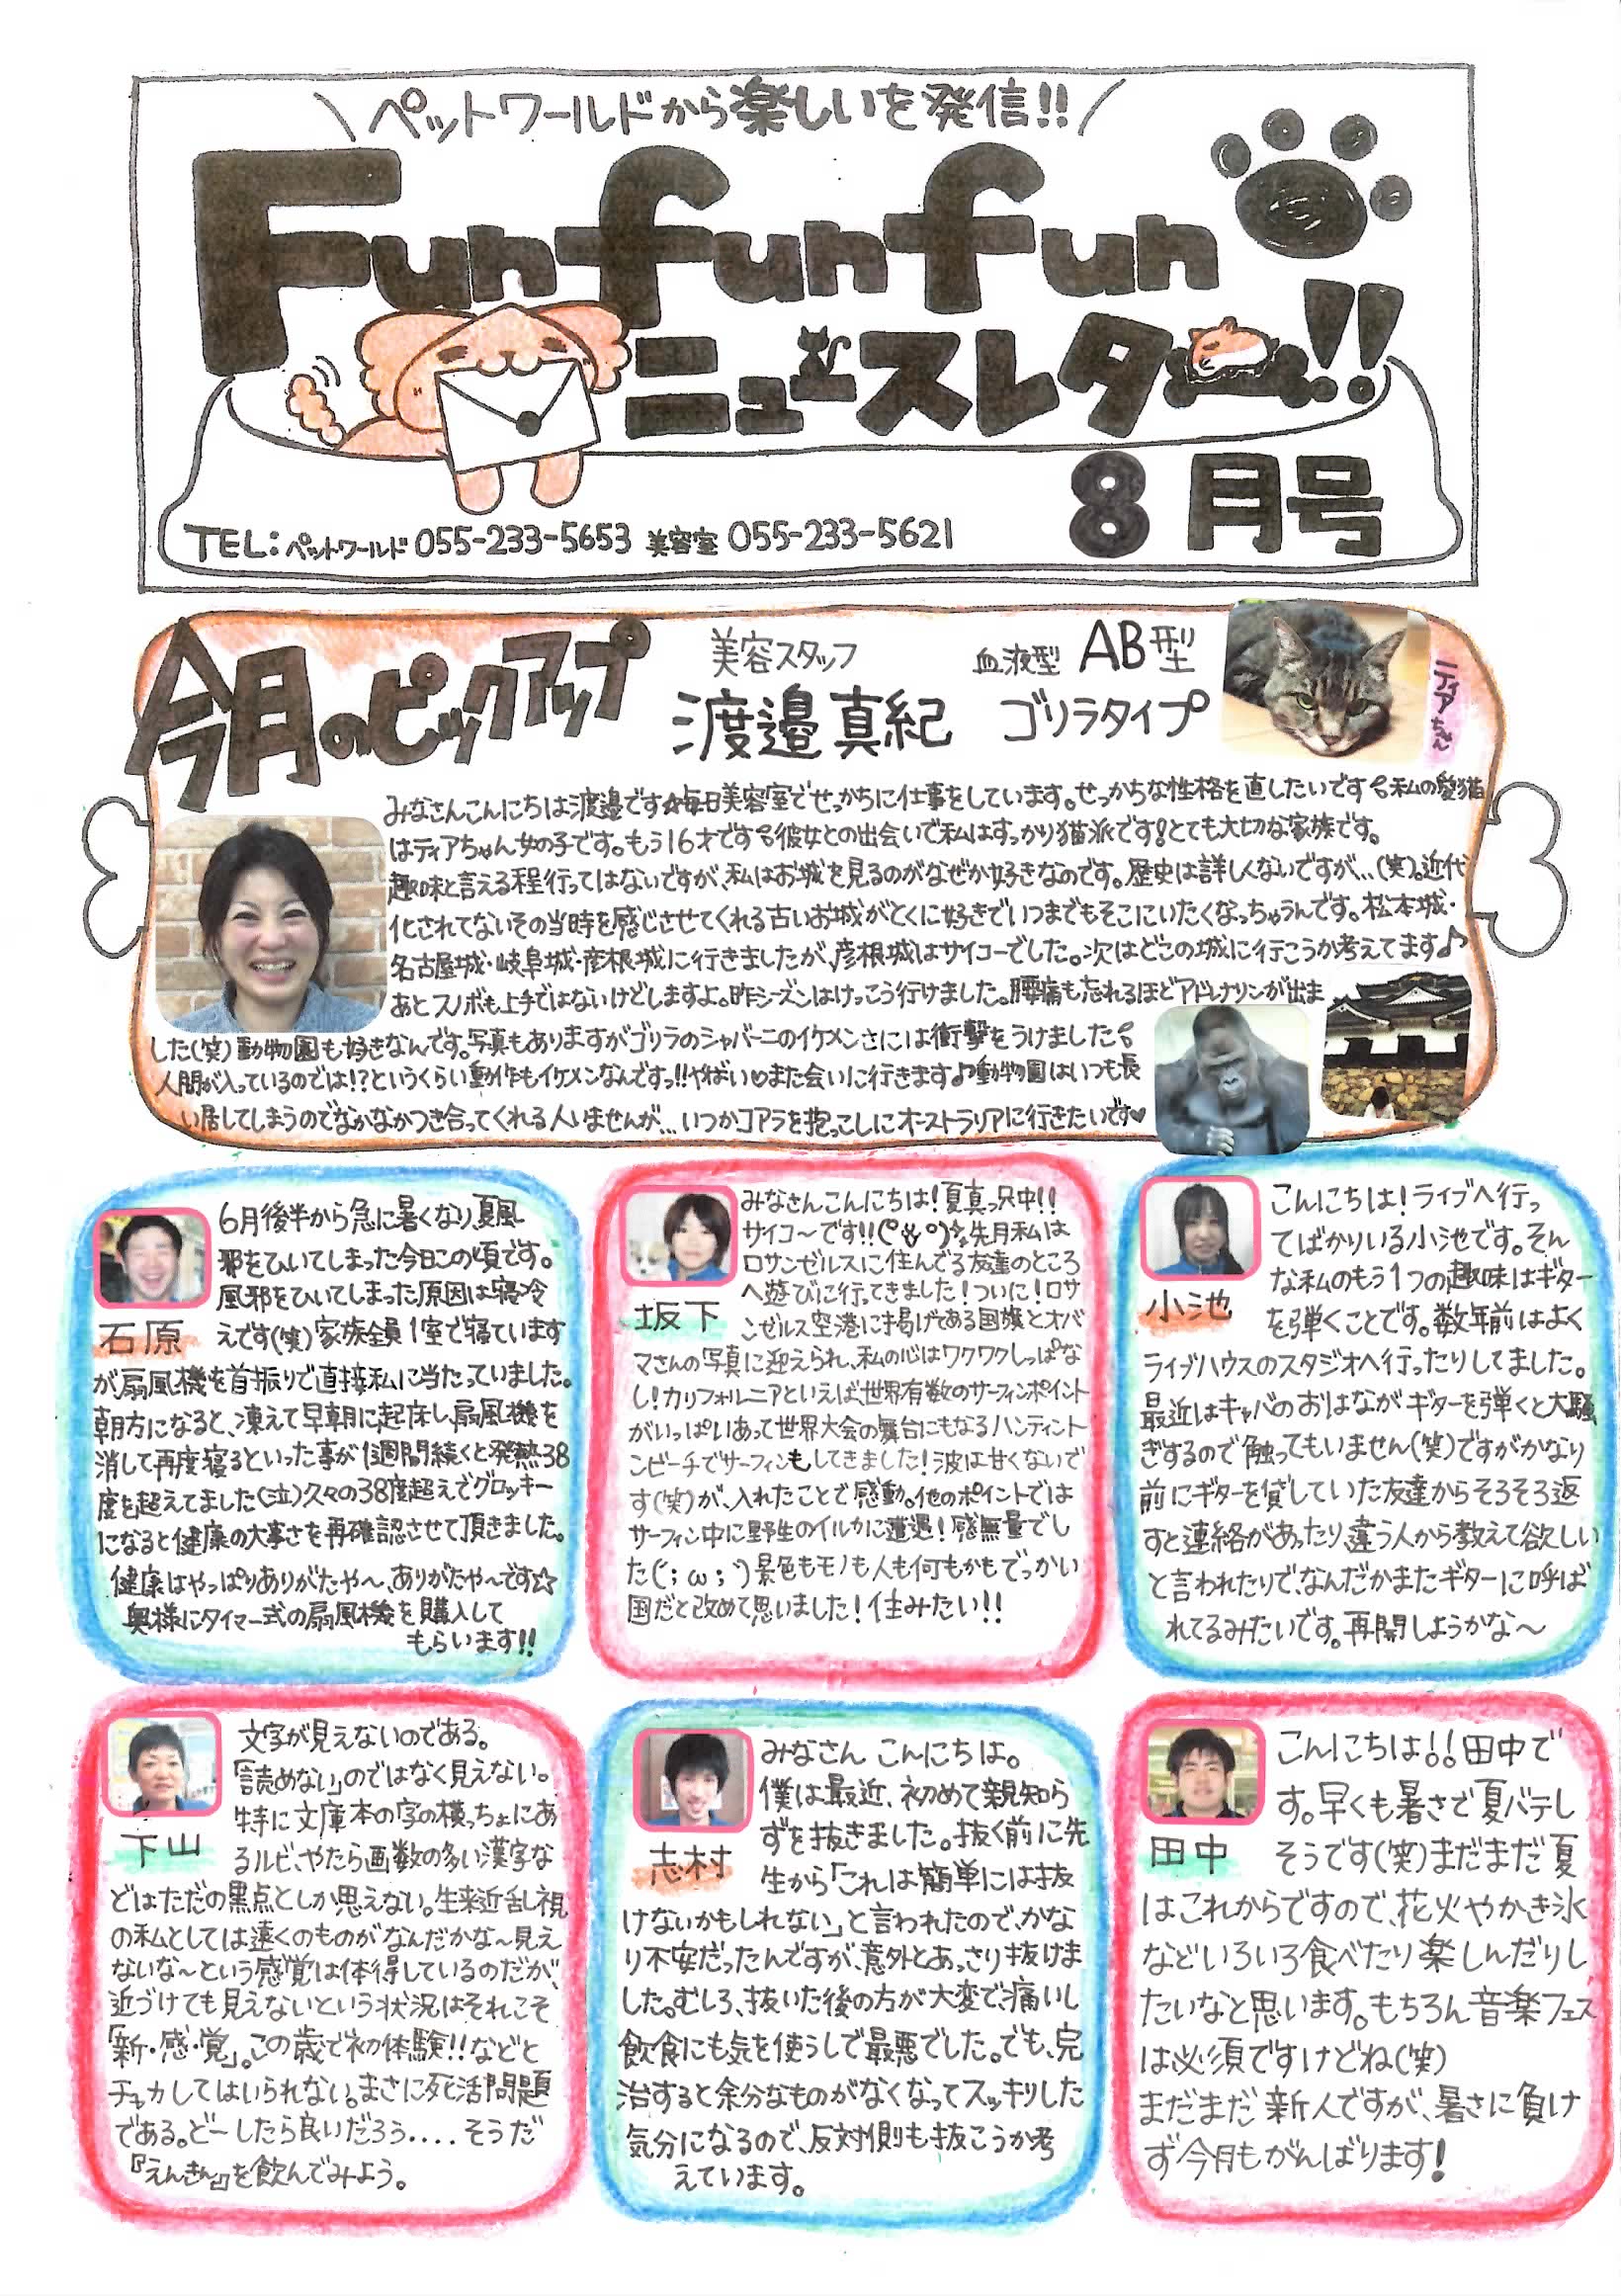 ペットワールドから楽しいを発信!!
Funfunfun
ニュースレター!!
8月号
TEL:ペットワールド 055-233-5653 美容室 055-233-5621
今月のピックアップ
美容スタッフ
渡邉真紀
血液型 AB型
ゴリラタイプ
ティアちゃん
みなさんこんにちは渡邉です☆毎日美容室でせっかちに仕事をしています。せっかちな性格を直したいです。私の愛猫
はティアちゃん女の子です。もう16才です。彼女との出会いで私はすっかり猫派です!とても大切な家族です。
趣味と言える程行ってはないですが、私はお城を見るのがなぜか好きなのです。歴史は詳しくないですが…(笑)。近代
化されてないその当時を感じさせてくれる古いお城がとくに好きでいつまでもそこにいたくなっちゃうんです。松本城・
名古屋城・岐阜城・彦根城に行きましたが、彦根城はサイコーでした。次はどこの城に行こうか考えてます♪
あとスノボも上手ではないけどしますよ。昨シーズンはけっこう行けました。腰痛も忘れるほどアドレナリンが出ま
した(笑)動物園も好きなんです。写真もありますがゴリラのシャバーニのイケメンさには衝撃をうけました。
人間が入っているのでは!?というくらい動作もイケメンなんですっ!!やばい♡また会いに行きます♪動物園はいつも長
い居してしまうのでなかなかつき合ってくれる人いませんが…いつかコアラを抱っこしにオーストラリアに行きたいです♥
石原
6月後半から急に暑くなり、夏風
邪をひいてしまった今日この頃です。
風邪をひいてしまった原因は寝冷
えです(笑)家族全員1室で寝ています
が扇風機を首振りで直接私に当たっていました。
朝方になると、凍えて早朝に起床し、扇風機を
消して再度寝るといった事が1週間続くと発熱38
度を超えてました(泣)久々の38度超えでグロッキー
になると健康の大事さを再確認させて頂きました。
健康はやっぱりありがたや〜、ありがたや〜です☆☆
奥様にタイマー式の扇風機を購入して
もらいます!!
坂下
みなさんこんにちは!夏真っ只中!!
サイコ〜です!!先月私は
ロサンゼルスに住んでる友達のところ
へ遊びに行ってきました!ついに!ロサ
ンゼルス空港に掲げてある国旗とオバ
マさんの写真に迎えられ、私の心はワクワクしっぱな
し!カリフォルニアといえば、世界有数のサーフィンポイント
がいっぱいあって世界大会の舞台にもなるハンティント
ンビーチでサーフィンもしてきました!波は甘くないで
す(笑)が、入れたことで感動。他のポイントでは
サーフィン中に野生のイルカに遭遇!感無量でし
た(´;ω;`)景色もモノも人も何もかもでっかい
国だと改めて思いました!住みたい!!
小池
こんにちは!ライブへ行っ
てばかりいる小池です。そん
な私のもう1つの趣味はギター
を弾くことです。数年前はよく
ライブハウスのスタジオへ行ったりしてました。
最近はキャバのおはながギターを弾くと大騒
ぎするので触ってもいません(笑)ですがかなり
前にギターを貸していた友達からそろそろ返
すと連絡があったり、違う人から教えて欲しい
と言われたりで、なんだかまたギターに呼ば
れてるみたいです。再開しようかな〜
下山
文字が見えないのである。
「読めない」のではなく見えない。
特に文庫本の字の横っちょにあ
るルビ、やたら画数の多い漢字な
どはただの黒点としか思えない。生来近乱視
の私としては遠くのものがなんだかな〜見え
ないな〜という感覚は体得しているのだが、
近づけても見えないという状況はそれこそ
「新・感・覚」。この歳で初体験!!などと
チャカしてはいられない。まさに死活問題
である。どーしたら良いだろう....そうだ
『えんきん』を飲んでみよう。
志村
みなさん こんにちは。
僕は最近、初めて親知ら
ずを抜きました。抜く前に先
生から「これは簡単には抜
けないかもしれない」と言われたので、かな
り不安だったんですが、意外とあっさり抜けま
した。むしろ、抜いた後の方が大変で、痛いし
飲食にも気を使うしで最悪でした。でも、完
治すると余分なものがなくなってスッキリした
気分になるので、反対側も抜こうか考
えています。
田中
こんにちは!!田中で
す。早くも暑さで夏バテし
そうです(笑)まだまだ夏
はこれからですので、花火やかき氷
などいろいろ食べたり楽しんだりし
たいなと思います。もちろん音楽フェス
は必須ですけどね(笑)
まだまだ新人ですが、暑さに負け
ず今月もがんばります!